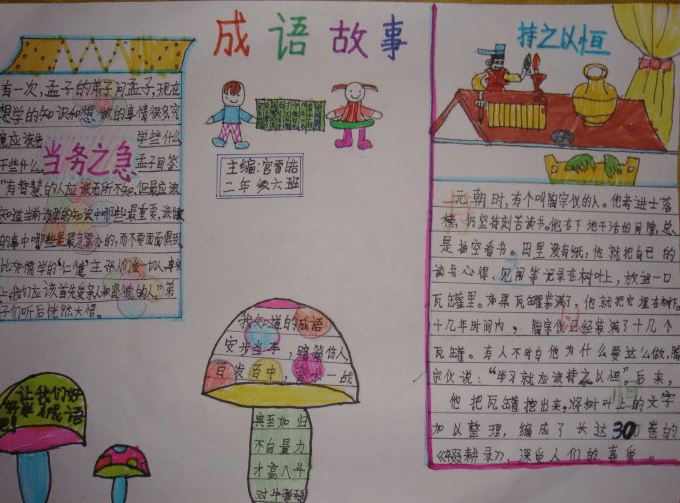 成语故事
主编:宫晋皓
二年级六班
当务之急
有一次,孟子的弟子问孟子,现在
想学的知识和想做的事情很多,究
竟应该先学些什么
干些什么。孟子回答
"有智慧的人应该无所不知,但最应该
知道当前该学的知识中哪些最重要,该做
的事中哪些是最急要办的,而不要面面俱到
比如儒学的"仁德"主张人们爱一切人,事实
上,我们应该首先爱亲人和贤德的人"弟
子们听后恍然大悟。
持之以恒
元朝时,有个叫陶宗仪的人。他考进士落
榜,仍坚持刻苦读书。他在下地干活的间隙,总
是抽空看书。田里没有纸,他就把自己的
读书心得、见闻等记录在树叶上,放进一口
瓦罐里。如果瓦罐装满了,他就把它埋在树下。
十几年时间内,陶宗仪已经装满了十几个
瓦罐。有人不明白他为什么要这么做,陶
宗仪说:"学习就应该持之以恒"。后来,
他把瓦罐挖出来,将树叶上的文字
加以整理,编成了长达30卷的
《辍耕录》,深受人们的喜爱。
我知道的成语
安步当车,骑
百发百中,一战
宾至如归
不自量力
才高八斗
让我们好
成语